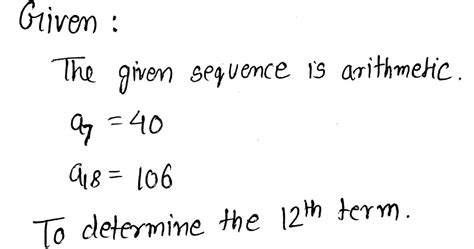 Given :
The given sequence is arithmetic.
a₇ = 40
a₁₈ = 106
To determine the 12th term.